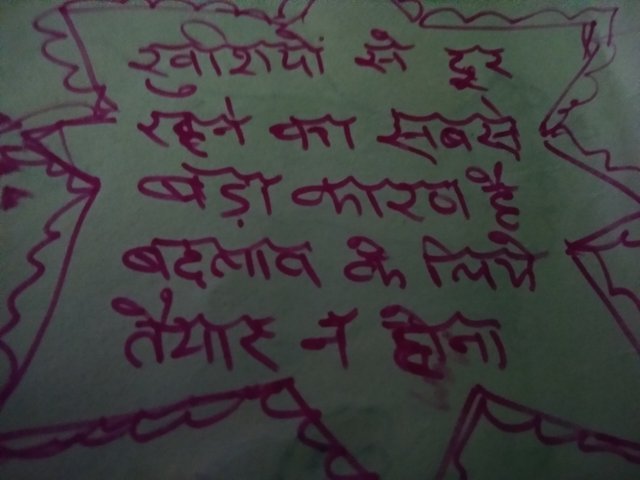 खुशियों से दूर
रहने का सबसे
बड़ा कारण है
बदलाव के लिये
तैयार न होना